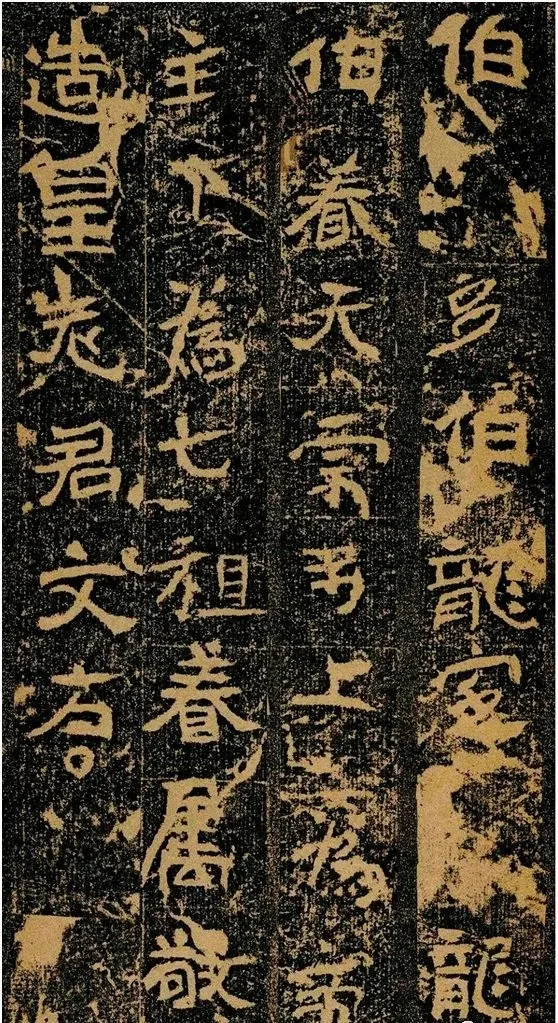 伯多伯龍龍
伯天宗等上為帝
主下為七祖眷屬敬
造皇老君文石